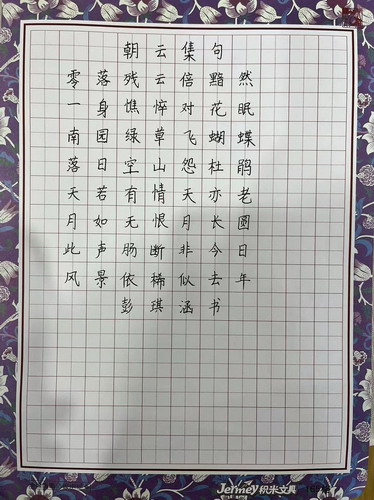 朝云集句
零落残云倍黯然
一身憔悴对花眠
南园绿草飞蝴蝶
落日空山怨杜鹃
天若有情天亦老
月如无恨月长圆
此声肠断非今日
风景依稀似去年
彭琪涵书
Jermey积米文具